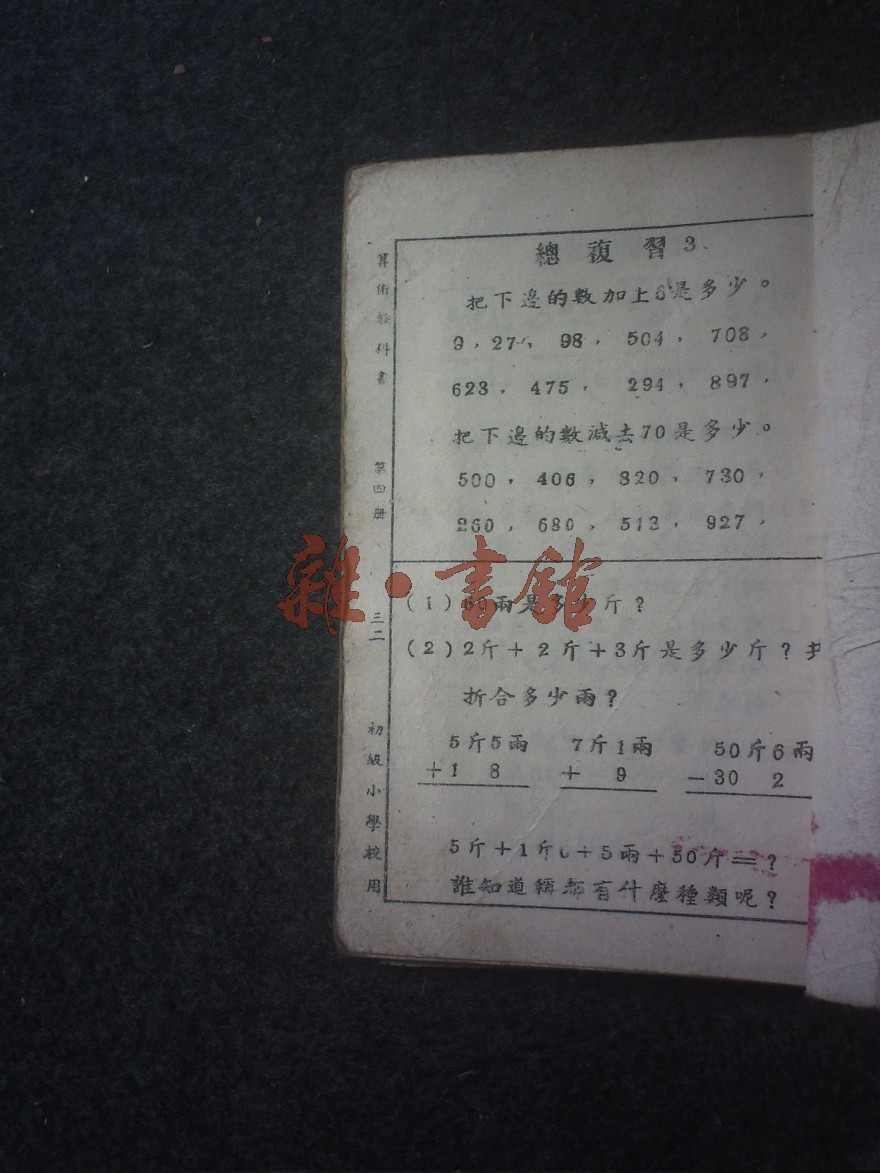 總復習 3.
把下邊的數加上6是多少。
9，27，98，504，708，
623，475，294，897，
把下邊的數減去70是多少。
500，406，820，730，
260，680，513，927，
(1) 60兩是多少斤？
(2) 2斤＋2斤＋3斤是多少斤？
折合多少兩？
5斤5兩 7斤1兩 50斤6兩
＋1 8 ＋ 9 －30 2
5斤＋1斤6＋5兩＋50斤＝？
誰知道稱都有什麼種類呢？
算術教科書
第四册
三二
初級小學校用
雜·書館